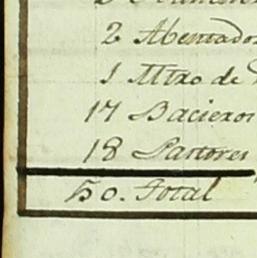 2 Abentado
1 Mtro de
17 Bacieros
18 Pastores
50. Total